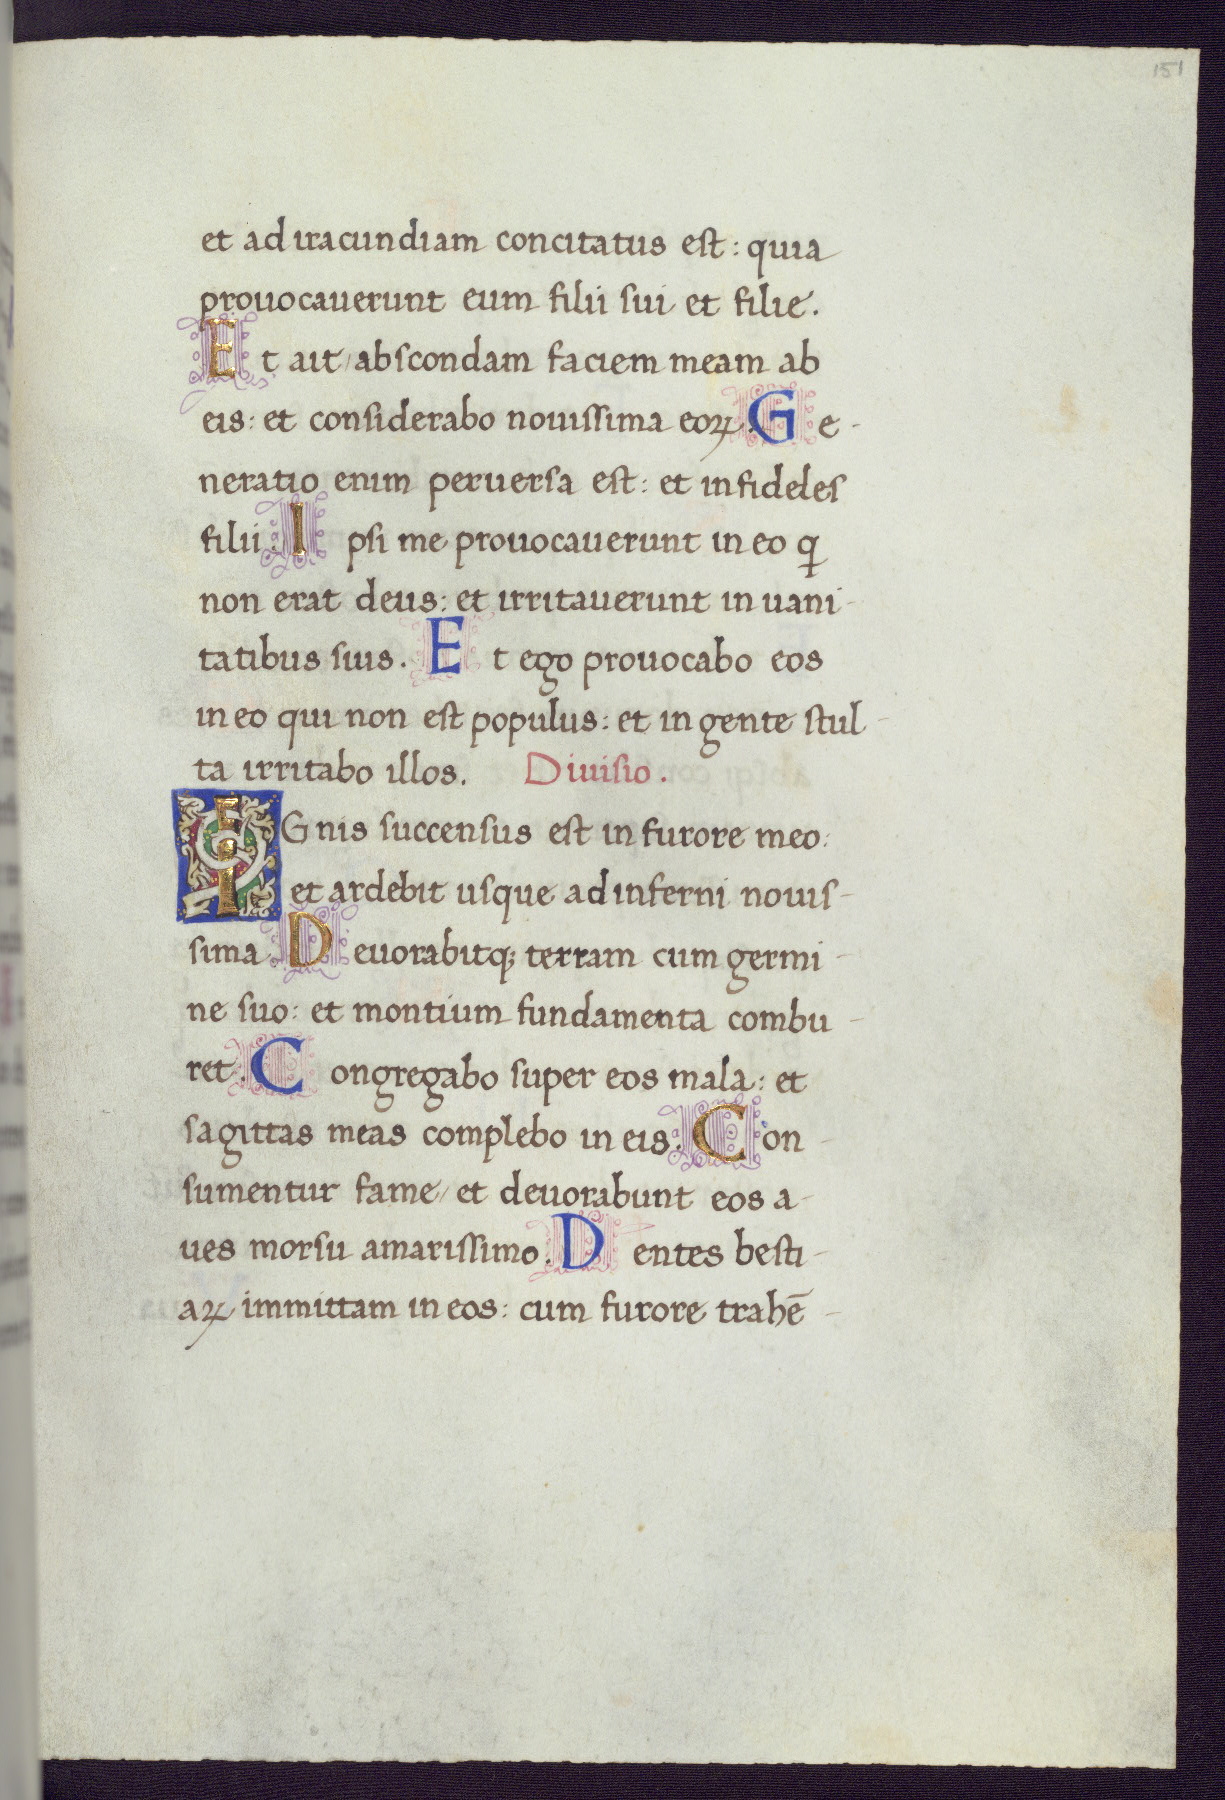 151
et ad iracundiam concitatus est: quia
prouocauerunt eum filii sui et filie.
Et ait/ abscondam faciem meam ab
eis: et considerabo nouissima eoꝝ. Ge-
neratio enim peruersa est: et infideles
filii. Ipsi me prouocauerunt in eo q̇
non erat deus: et irritauerunt in uani-
tatibus suis. Et ego prouocabo eos
in eo qui non est populus: et in gente stul-
ta irritabo illos. Diuisio.
IGnis succensus est in furore meo:
et ardebit usque ad inferni nouis-
sima. Deuorabitq; terram cum germi-
ne suo: et montium fundamenta combu-
ret. Congregabo super eos mala: et
sagittas meas complebo in eis. Con-
sumentur fame/ et deuorabunt eos a-
ues morsu amarissimo. Dentes besti-
aꝝ immittam in eos: cum furore trahē-